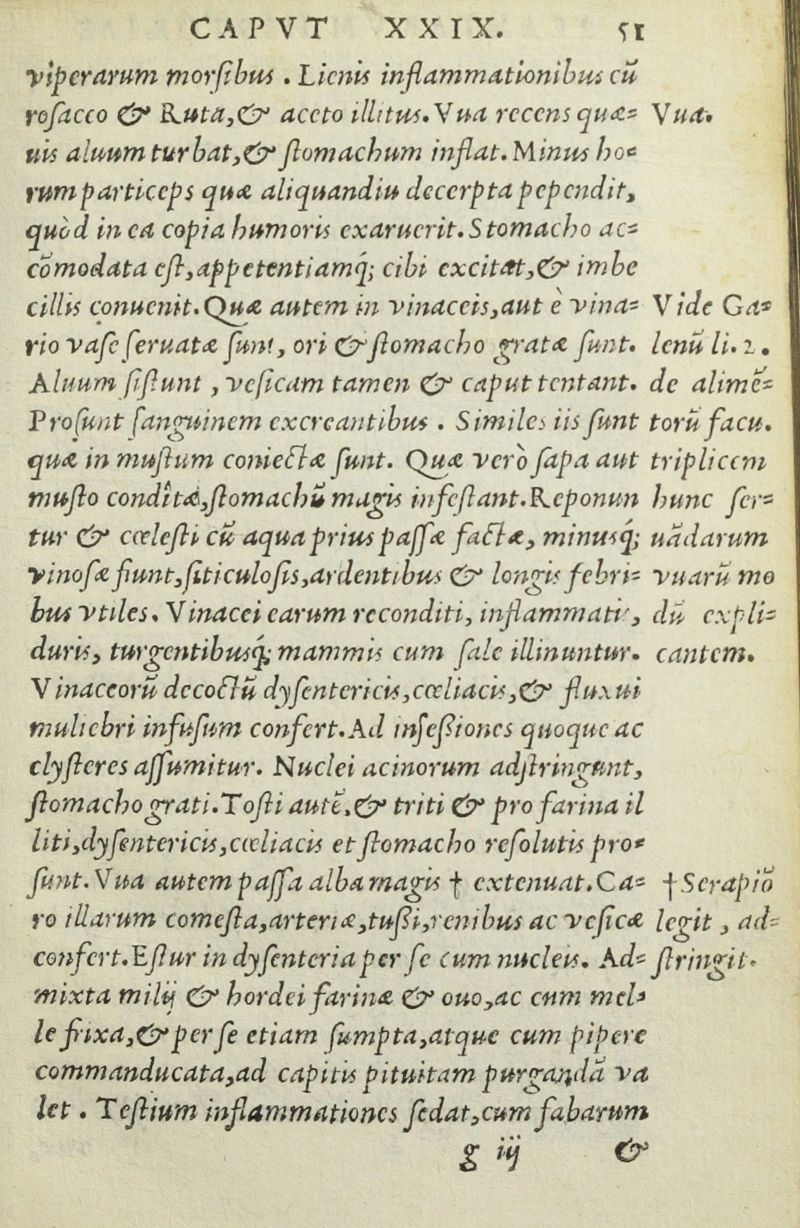 CAPVT XXIX. 51
viperarum morſibus. Lienis inflammationibus cū
roſacco & Ruta, & aceto illitus. Vua recens quæ=
uis aluum turbat, & ſtomachum inflat. Minus ho=
rum particeps quæ aliquandiu decerpta pependit,
quòd in ea copia humoris exaruerit. Stomacho ac=
cōmodata eſt, appetentiamq́; cibi excitat, & imbe
cillis conuenit. Quæ autem in vinaceis, aut è vina=
rio vaſe ſeruatæ ſunt, ori & ſtomacho gratæ ſunt.
Aluum ſiſtunt, veſicam tamen & caput tentant.
Proſunt ſanguinem excreantibus. Similes iis ſunt
quæ in muſtum coniectæ ſunt. Quæ verò ſapa aut
muſto condîtæ, ſtomachū magis infeſtant. Reponun
tur & cœleſti cū aqua prius paſſæ factæ, minusq́;
vinoſæ fiunt, ſiticuloſis, ardentibus & longis febri=
bus vtiles. Vinacei earum reconditi, inflammatis,
duris, turgentibusq́; mammis cum ſale illinuntur.
Vinaceorū decoctū dyſentericis, cœliacis, & fluxui
muliebri infuſum confert. Ad inſeßiones quoque ac
clyſteres aſſumitur. Nuclei acinorum adſtringunt,
ſtomacho grati. Toſti autē, & triti & pro farina il
liti, dyſentericis, cœliacis et ſtomacho reſolutis pro=
ſunt. Vua autem paſſa alba magis † extenuat. Ca=
ro illarum comeſta, arteriæ, tußi, renibus ac veſicæ
confert. Eſtur in dyſenteria per ſe cum nucleis. Ad=
mixta milij & hordei farinæ & ouo, ac cum mel=
le frixa, & per ſe etiam ſumpta, atque cum pipere
commanducata, ad capitis pituitam purgandā va
let. Teſtium inflammationes ſedat, cum fabarum
g iij &
Vua.
Vide Ga=
lenū li. 2.
de alimē=
torū facu.
triplicem
hunc ſer=
uādarum
vuarū mo
dū expli=
cantem.
† Serapiō
legit, ad=
ſtringit.